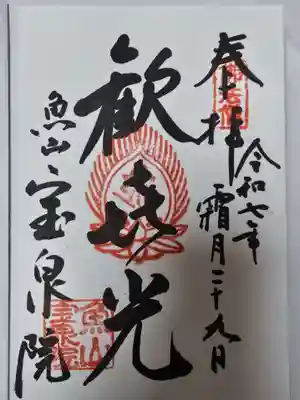 奉拝
令和七年
霜月二十九日
歓喜光
魚山 宝泉院
魚山
宝泉院